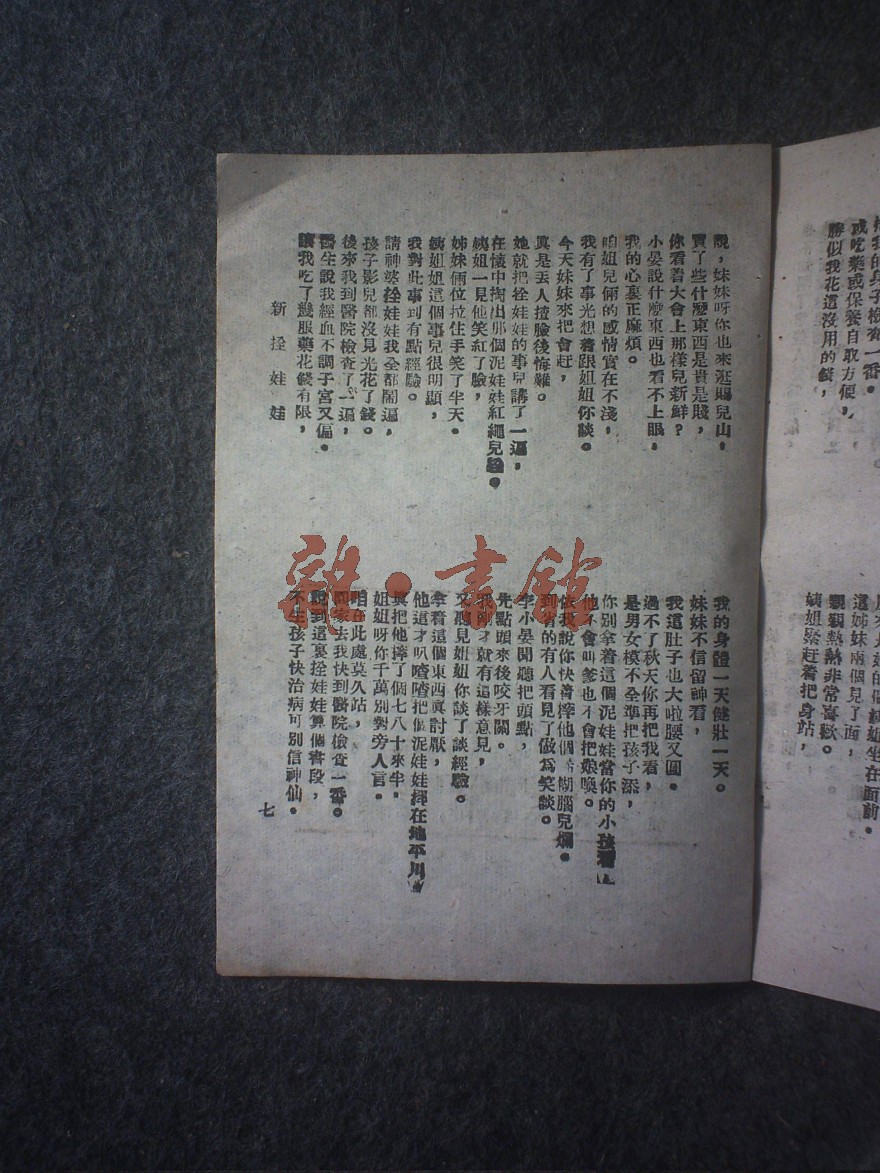 或吃藥或保養自取方便，
勝似我花這沒用的錢，
這姊妹兩個見了面，
親親熱熱非常喜歡。
姨姐緊趕着把身站，
說，妹妹呀你也來逛賜兒山，
買了些什麼東西是貴是賤，
你看着大會上那樣兒新鮮？
小晏說什麼東西也看不上眼，
我的心裏正麻煩。
咱姐兒倆的感情實在不淺，
我有了事光想着跟姐姐你談。
今天妹妹來把會赶，
眞是丟人揸臉後悔難。
她就把拴娃娃的事兒講了一遍，
在懷中掏出那個泥娃娃紅繩兒拴。
姨姐一見他笑紅了臉，
姊妹倆位拉住手笑了半天。
姨姐姐這個事兒很明顯，
我對此事到有點經驗。
請神婆拴娃娃我全都鬧遍，
孩子影兒都沒見光花了錢。
後來我到醫院檢查了一遍，
醫生說我經血不調子宮又偏。
讓我吃了幾服藥花錢有限，
我的身體一天健壯一天。
妹妹不信留神看，
我這肚子也大啦腰又圓。
過不了秋天你再把我看，
是男女模不全準把孩子添，
你別拿着這個泥娃娃當你的小孩看
他不會叫爹也不會把娘喚。
依我說你快着摔他個 糊腦兒爛。
到省的有人看見了做為笑談。
李小晏聞聽把頭點，
先點頭來後咬牙關。
我剛才就有這樣意見，
又聽見姐姐你談了談經驗。
拿看這個東西眞討厭，
他這才叭喳喳把個泥娃娃摔在地平川
眞把他摔了個七八十來半。
姐姐呀你千萬別對旁人言。
咱在此處莫久站，
回家去我快到醫院檢查一番。
說到這裏拴娃娃算個書段，
不生孩子快治病可別信神仙。
新拴娃娃
七
雜·書館